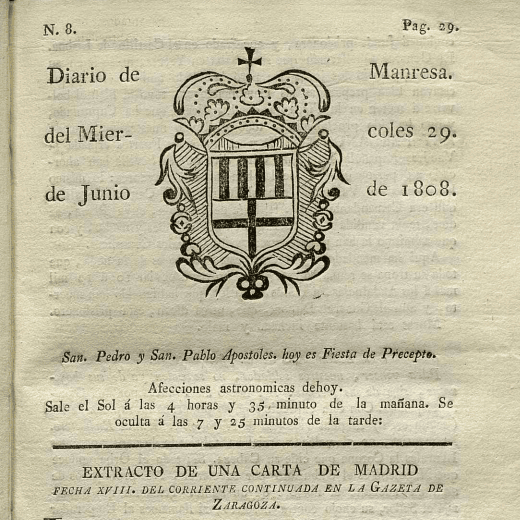 N. 8. Pag. 29.
Diario de Manresa.
del Mier- coles 29.
de Junio de 1808.
San. Pedro y San. Pablo Apostoles. hoy es Fiesta de Precepto.
Afecciones astronomicas dehoy.
Sale el Sol á las 4 horas y 35 minuto de la mañana. Se
oculta á las 7 y 25 minutos de la tarde:
EXTRACTO DE UNA CARTA DE MADRID
FECHA XVIII. DEL CORRIENTE CONTINUADA EN LA GAZETA DE
ZARAGOZA.